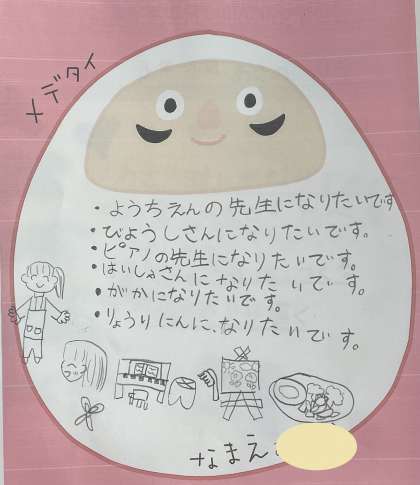 メデタイ
・ようちえんの先生になりたいです
・びようしさんになりたいです。
・ピアノの先生になりたいです。
・はいしゃさんになりたいです。
・がかになりたいです。
・りょうりにんに、なりたいです。
なまえ